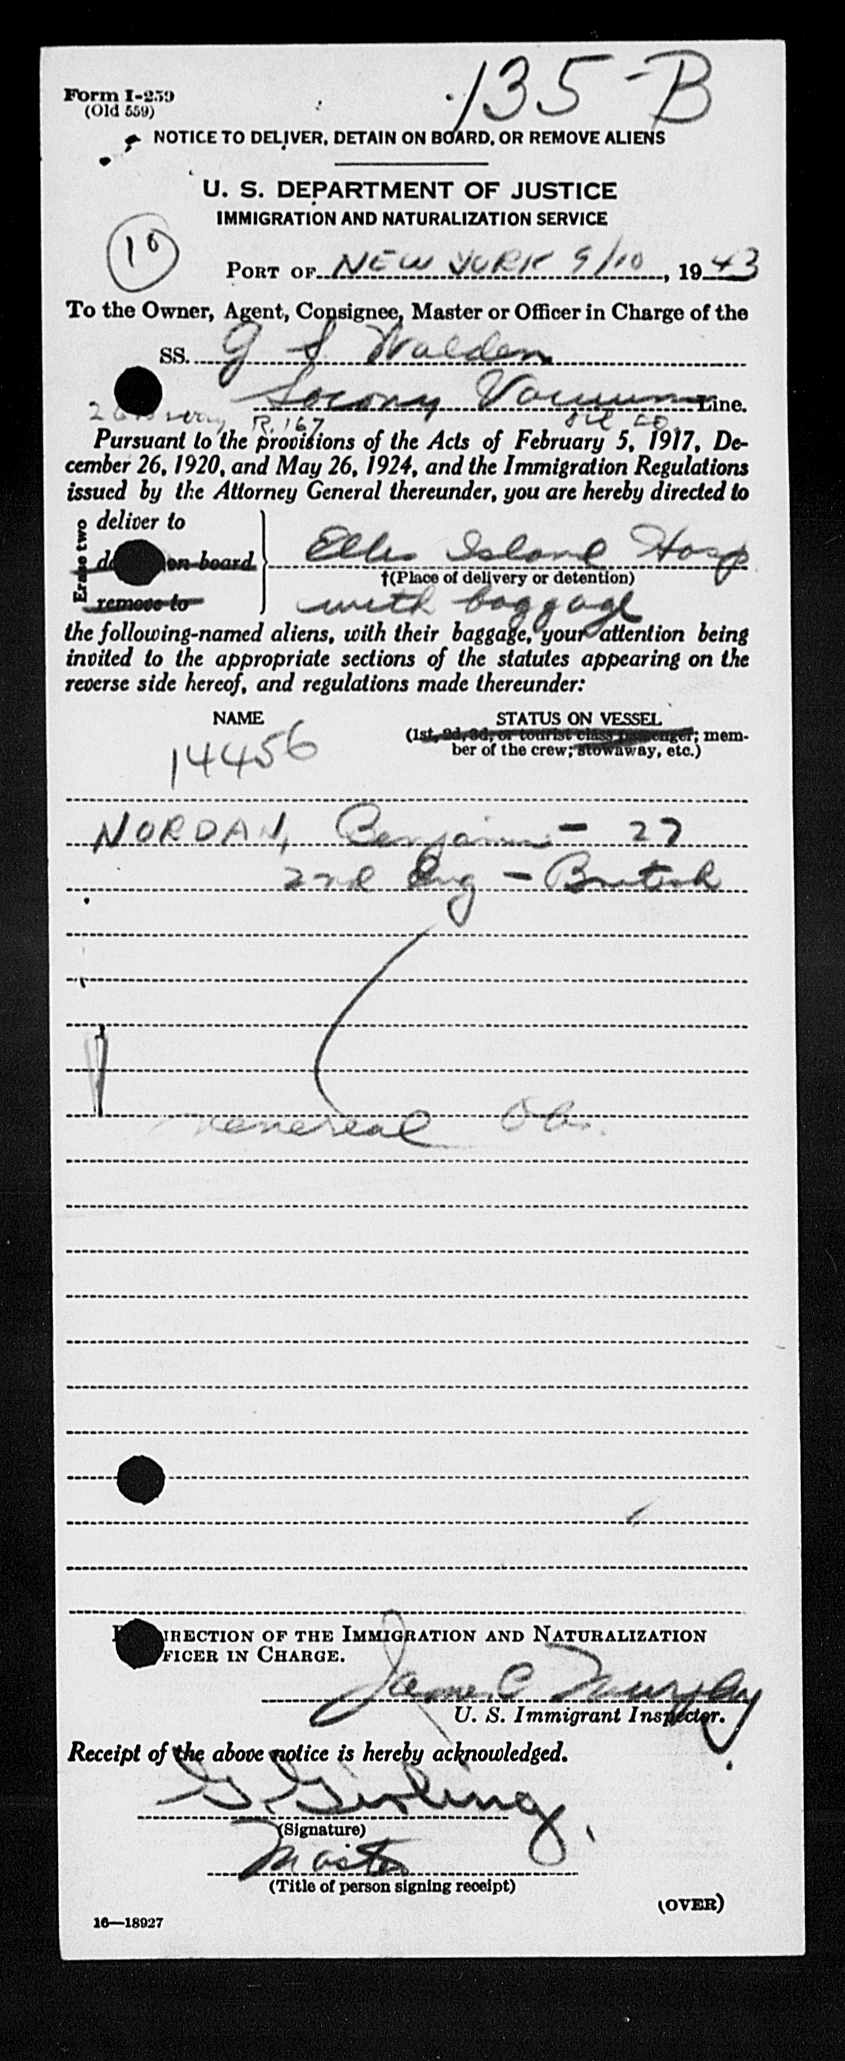 135-B
Form I-259
(Old 559)
NOTICE TO DELIVER, DETAIN ON BOARD, OR REMOVE ALIENS
U. S. DEPARTMENT OF JUSTICE
IMMIGRATION AND NATURALIZATION SERVICE
10
PORT OF NEW YORK 9/10, 1943
To the Owner, Agent, Consignee, Master or Officer in Charge of the
SS. G S Walden
Socony Vacuum Line.
26 Broadway R. 167 Oil Co.
Pursuant to the provisions of the Acts of February 5, 1917, De-
cember 26, 1920, and May 26, 1924, and the Immigration Regulations
issued by the Attorney General thereunder, you are hereby directed to
Erase two
deliver to
on board
remove to
Ellis Island Hosp
†(Place of delivery or detention)
with baggage
the following-named aliens, with their baggage, your attention being
invited to the appropriate sections of the statutes appearing on the
reverse side hereof, and regulations made thereunder:
NAME STATUS ON VESSEL
(1st, 2d, 3d, or tourist class passenger; mem-
ber of the crew; stowaway, etc.)
14456
NORDAN, Benjamin - 27
2nd Eng - British
Venereal
DIRECTION OF THE IMMIGRATION AND NATURALIZATION
FICER IN CHARGE.
James C Murphy
U. S. Immigrant Inspector.
Receipt of the above notice is hereby acknowledged.
G. Girling
(Signature)
Master
(Title of person signing receipt)
(OVER)
16—18927